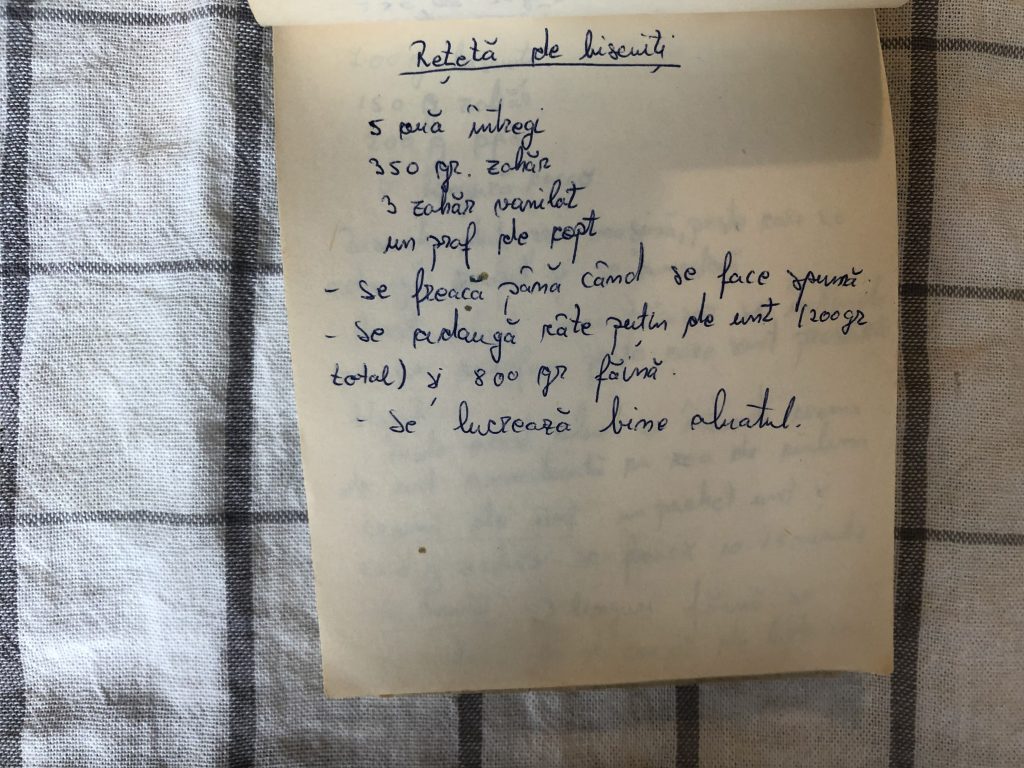 Rețetă de biscuiți
5 ouă întregi
350 gr. zahăr
3 zahăr vanilat
un praf de copt
- Se freacă până când se face spumă.
- Se adaugă câte puțin de unt (200gr
total) și 800 gr făină.
- Se lucrează bine aluatul.